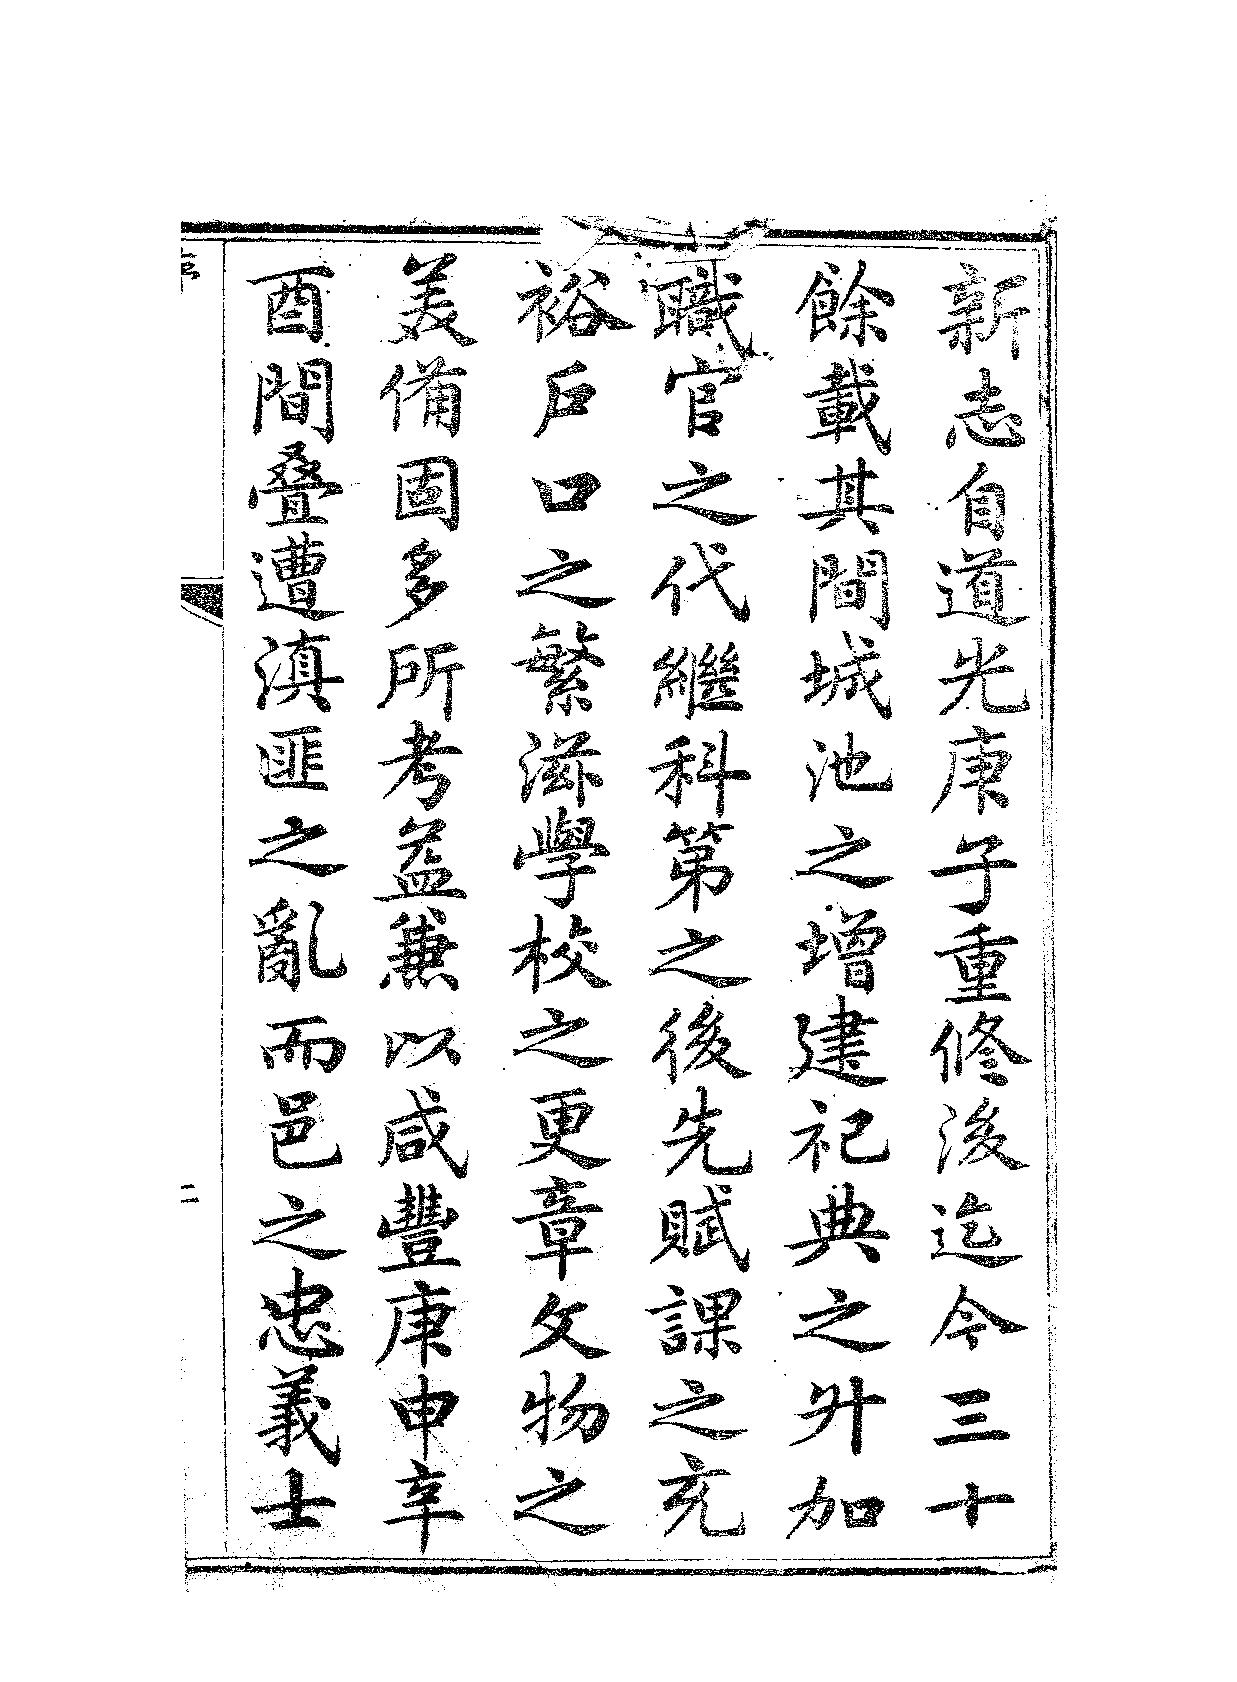 新志自道光庚子重修後迄今三十
餘載其間城池之增建祀典之升加
職官之代繼科第之後先賦課之充
裕戶口之繁滋學校之更章文物之
美備固多所考益兼以咸豐庚申辛
酉間疊遭滇匪之亂而邑之忠義士
二